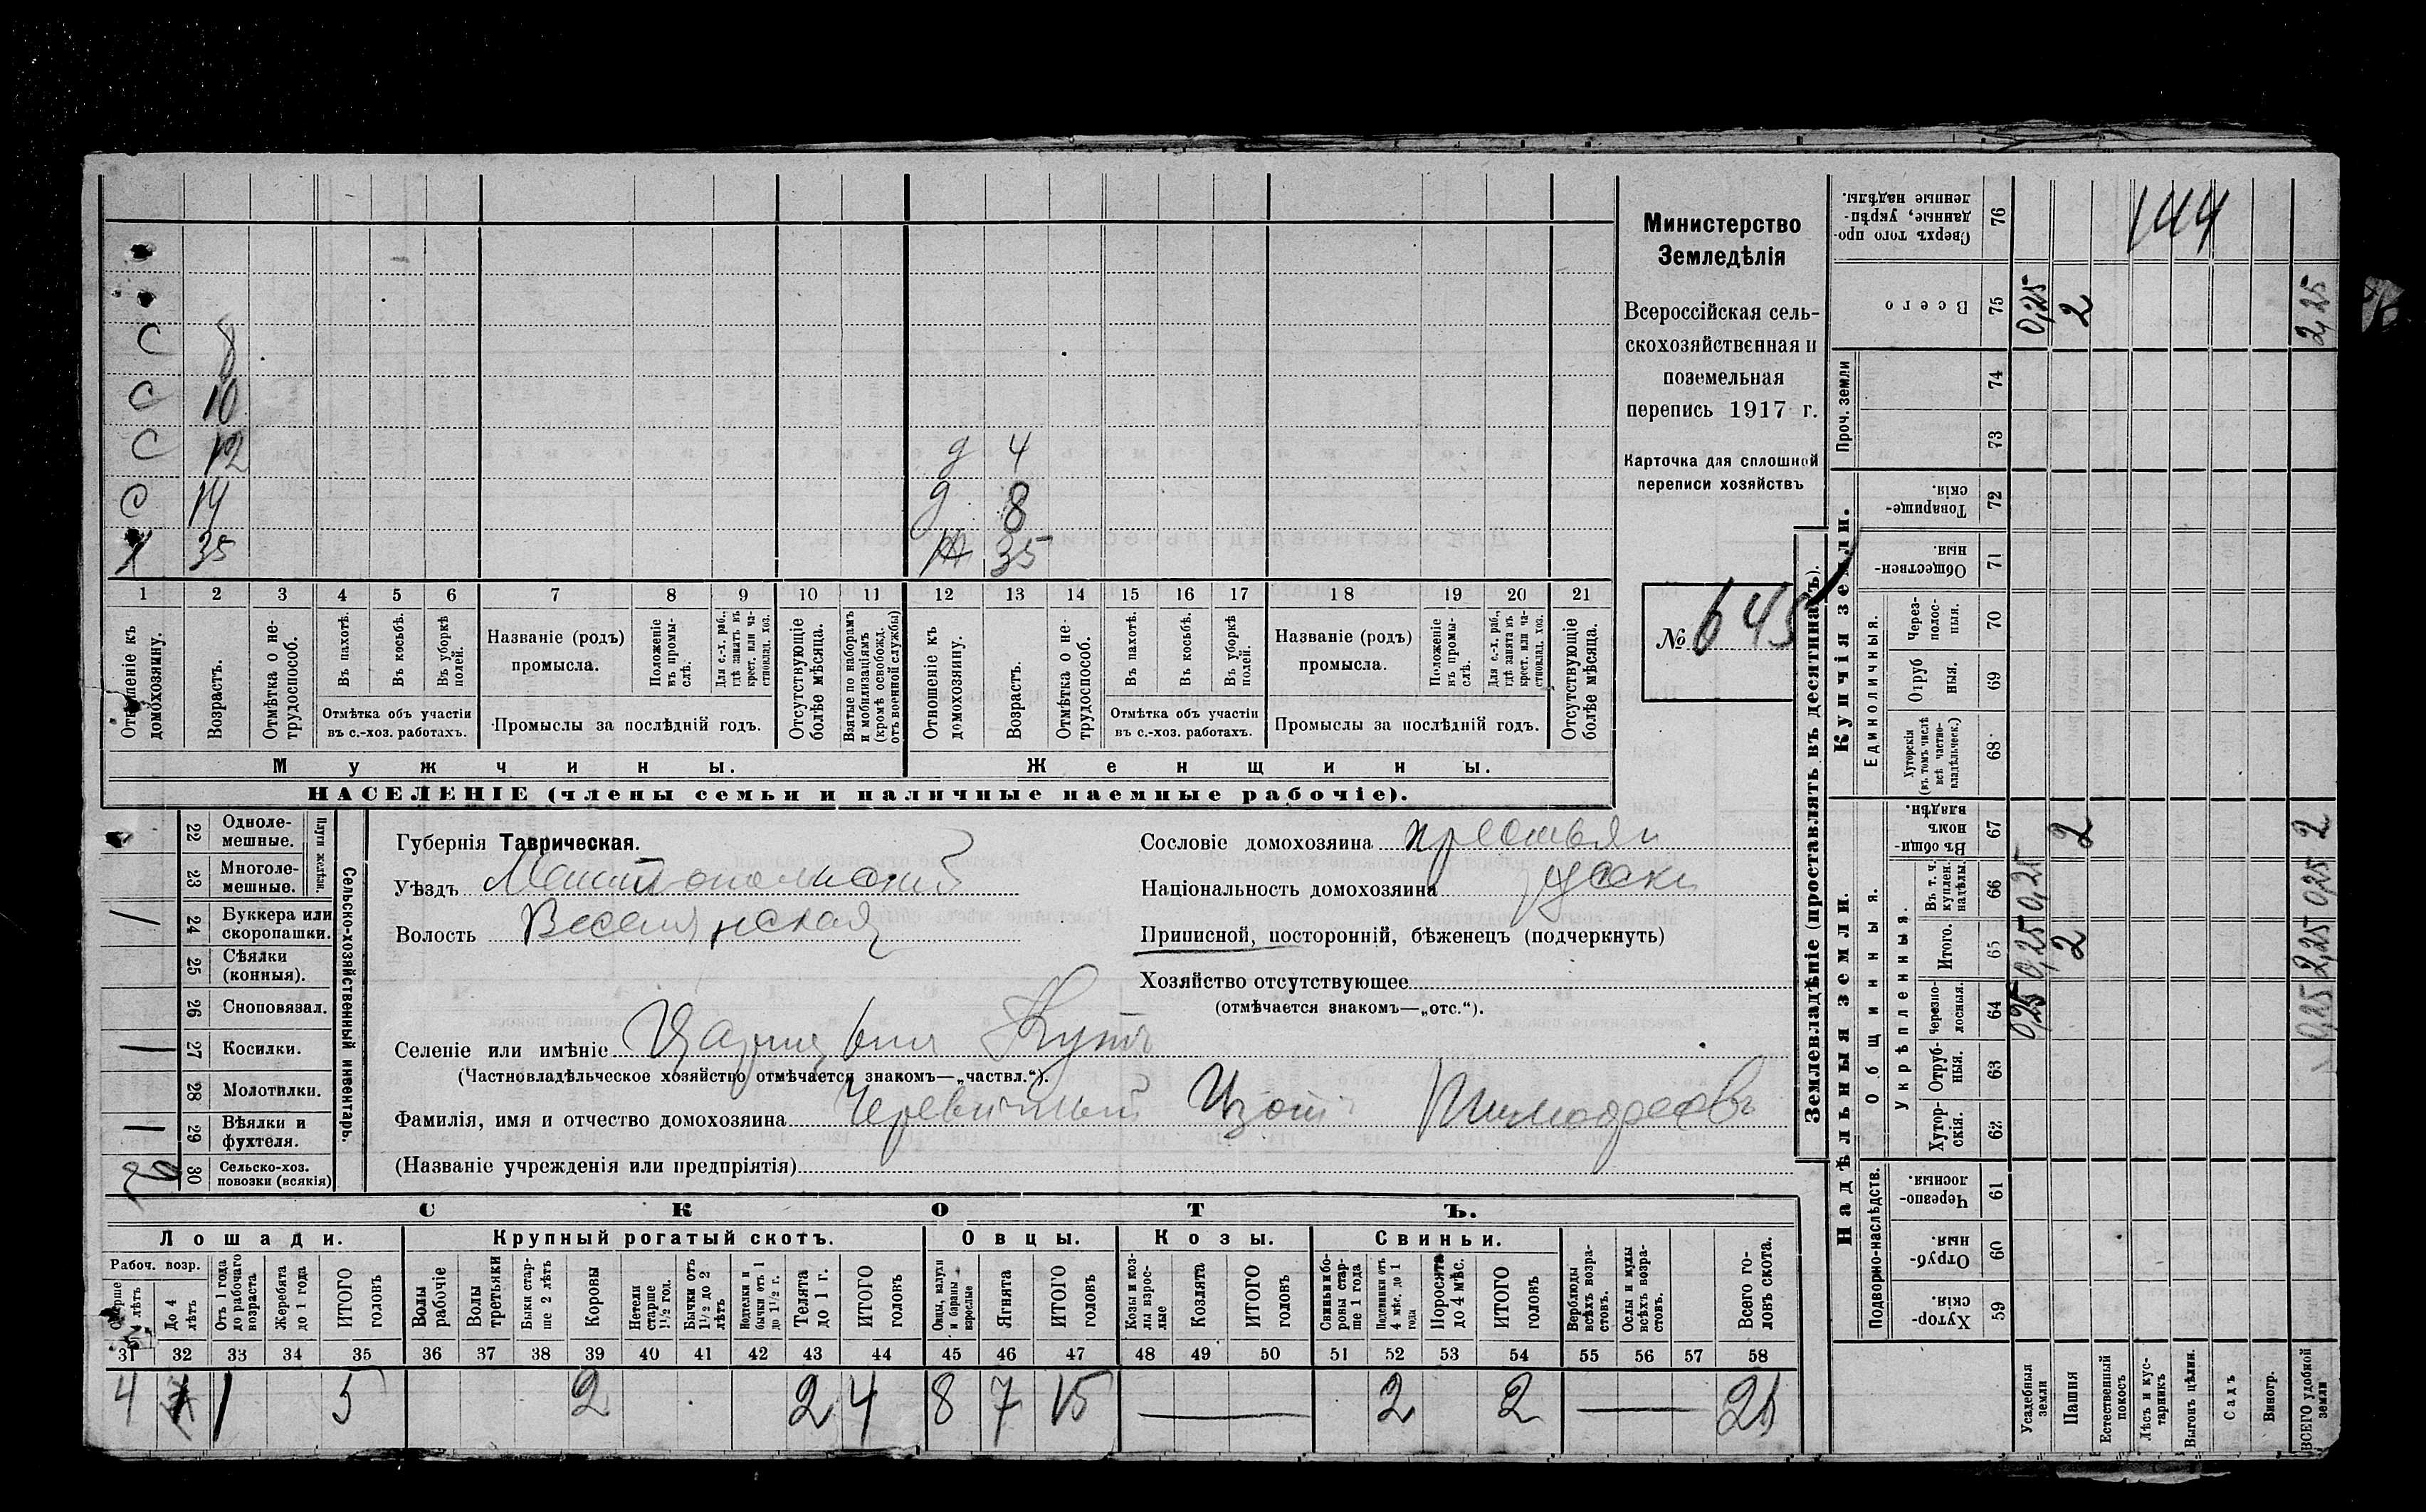 С 8
С 10
С 12 д 4
С 14 д 8
Х 35 Ж 35
1 2 3 4 5 6 7 8 9 10 11 12 13 14 15 16 17 18 19 20 21
Отношеніе къ домохозяину.
Возрастъ.
Отмѣтка о нетрудоспособ.
Въ пахотѣ.
Въ косьбѣ.
Въ уборкѣ полей.
Отмѣтка объ участіи въ с.-хоз. работахъ.
Названіе (родъ) промысла.
Положеніе въ промыслѣ.
Для с.-х. раб., гдѣ занятъ въ крест. или частновлад. хоз.
Промыслы за послѣдній годъ.
Отсутствующіе болѣе мѣсяца.
Взятые по наборамъ и мобилизаціямъ (кромѣ освобожд. отъ военной службы)
Отношеніе къ домохозяину.
Возрастъ.
Отмѣтка о нетрудоспособ.
Въ пахотѣ.
Въ косьбѣ.
Въ уборкѣ полей.
Отмѣтка объ участіи въ с.-хоз. работахъ.
Названіе (родъ) промысла.
Положеніе въ промыслѣ.
Для с.-х. раб., гдѣ занята въ крест. или частновлад. хоз.
Промыслы за послѣдній годъ.
Отсутствующіе болѣе мѣсяца.
Мужчины. Женщины.
НАСЕЛЕНІЕ (члены семьи и наличные наемные рабочіе).
Министерство
Земледѣлія
Всероссійская сель-
скохозяйственная и
поземельная
перепись 1917 г.
Карточка для сплошной
переписи хозяйствъ
№ 645
22 Одноле-мешные.
23 Многоле-мешные.
Плуги желѣзн.
24 Буккера или скоропашки. 1
25 Сѣялки (конныя).
26 Сноповязал.
27 Косилки. 1
28 Молотилки.
29 Вѣялки и фухтеля. 1
30 Сельско-хоз. повозки (всякія)
Сельско-хозяйственный инвентарь.
Губернія Таврическая.
Уѣздъ Мелитопольскій
Волость Веселянская
Селеніе или имѣніе Царицынъ Кутъ
(Частновладѣльческое хозяйство отмѣчается знакомъ—„частвл.“).
Фамилія, имя и отчество домохозяина Черевичный Изотъ Тимофеевъ
(Названіе учрежденія или предпріятія)
Сословіе домохозяина крестьян
Національность домохозяина русски
Приписной, посторонній, бѣженецъ (подчеркнуть)
Хозяйство отсутствующее
(отмѣчается знакомъ—„отс.“).
СКОТЪ.
Лошади. Крупный рогатый скотъ. Овцы. Козы. Свиньи.
Рабоч. возр.
Старше 4 лѣтъ
До 4 лѣтъ
Отъ 1 года до рабочаго возраста
Жеребята до 1 года
ИТОГО головъ
Волы рабочіе
Волы третьяки
Быки старше 2 лѣтъ
Коровы
Нетели старше 1½ год.
Бычки отъ 1½ до 2 лѣтъ
Подтелки и бычки отъ 1 до 1½ г.
Телята до 1 г.
ИТОГО головъ
Овцы, валухи и бараны взрослые
Ягнята
ИТОГО головъ
Козы и козлы взрослые
Козлята
ИТОГО головъ
Свиньи и боровы старше 1 года
Подсвинки отъ 4 мѣс. до 1 года
Поросята до 4 мѣс.
ИТОГО головъ
Верблюды всѣхъ возрастовъ.
Ослы и мулы всѣхъ возрастовъ.
Всего головъ скота.
31 32 33 34 35 36 37 38 39 40 41 42 43 44 45 46 47 48 49 50 51 52 53 54 55 56 57 58
4 1 5 2 2 4 8 7 15 2 2
Землевладѣніе (проставлять въ десятинахъ).
Надѣльныя земли. Купчія земли.
Подворно-наслѣдств.
Общинныя.
Укрѣпленныя.
Единоличныя.
Проч. земли
Хуторскія 59
Отрубныя. 60
Черезполосныя. 61
Хуторскія. 62
Отрубныя. 63
Черезполосныя. 64
Итого. 65
Въ т. ч. куплен. надѣлы. 66
Въ общинномъ владѣн. 67
Хуторскія (въ томъ числѣ всѣ частновладѣльческ.) 68
Отрубныя. 69
Черезполосныя. 70
Общественныя. 71
Товарищескія. 72
73
74
Всего 75
Сверхъ того проданные, укрѣпленные надѣлы. 76
Усадебныя земли 0,25 0,25 0,25 0,25
Пашня 2 2 2
Естественный покосъ
Лѣсъ и кустарникъ
Выгонъ цѣлин.
Садъ
Виногр.
ВСЕГО удобной земли 0,25 2,25 0,25 2 2,25
144